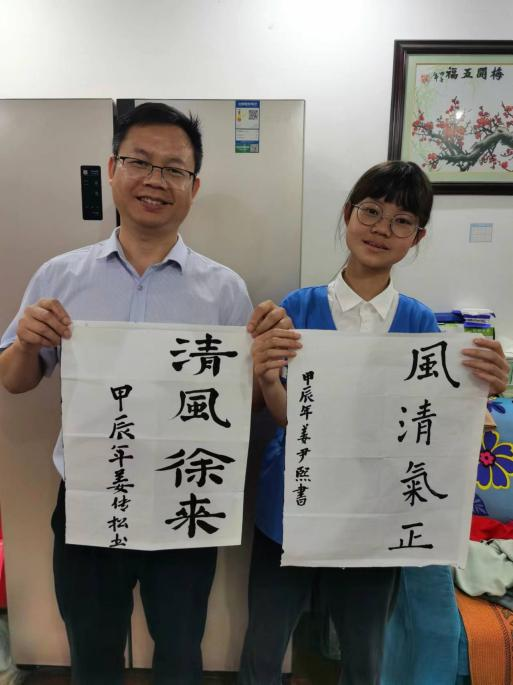 清風徐来
甲辰年姜传松书
風清氣正
甲辰年姜尹熙書
梅開五福